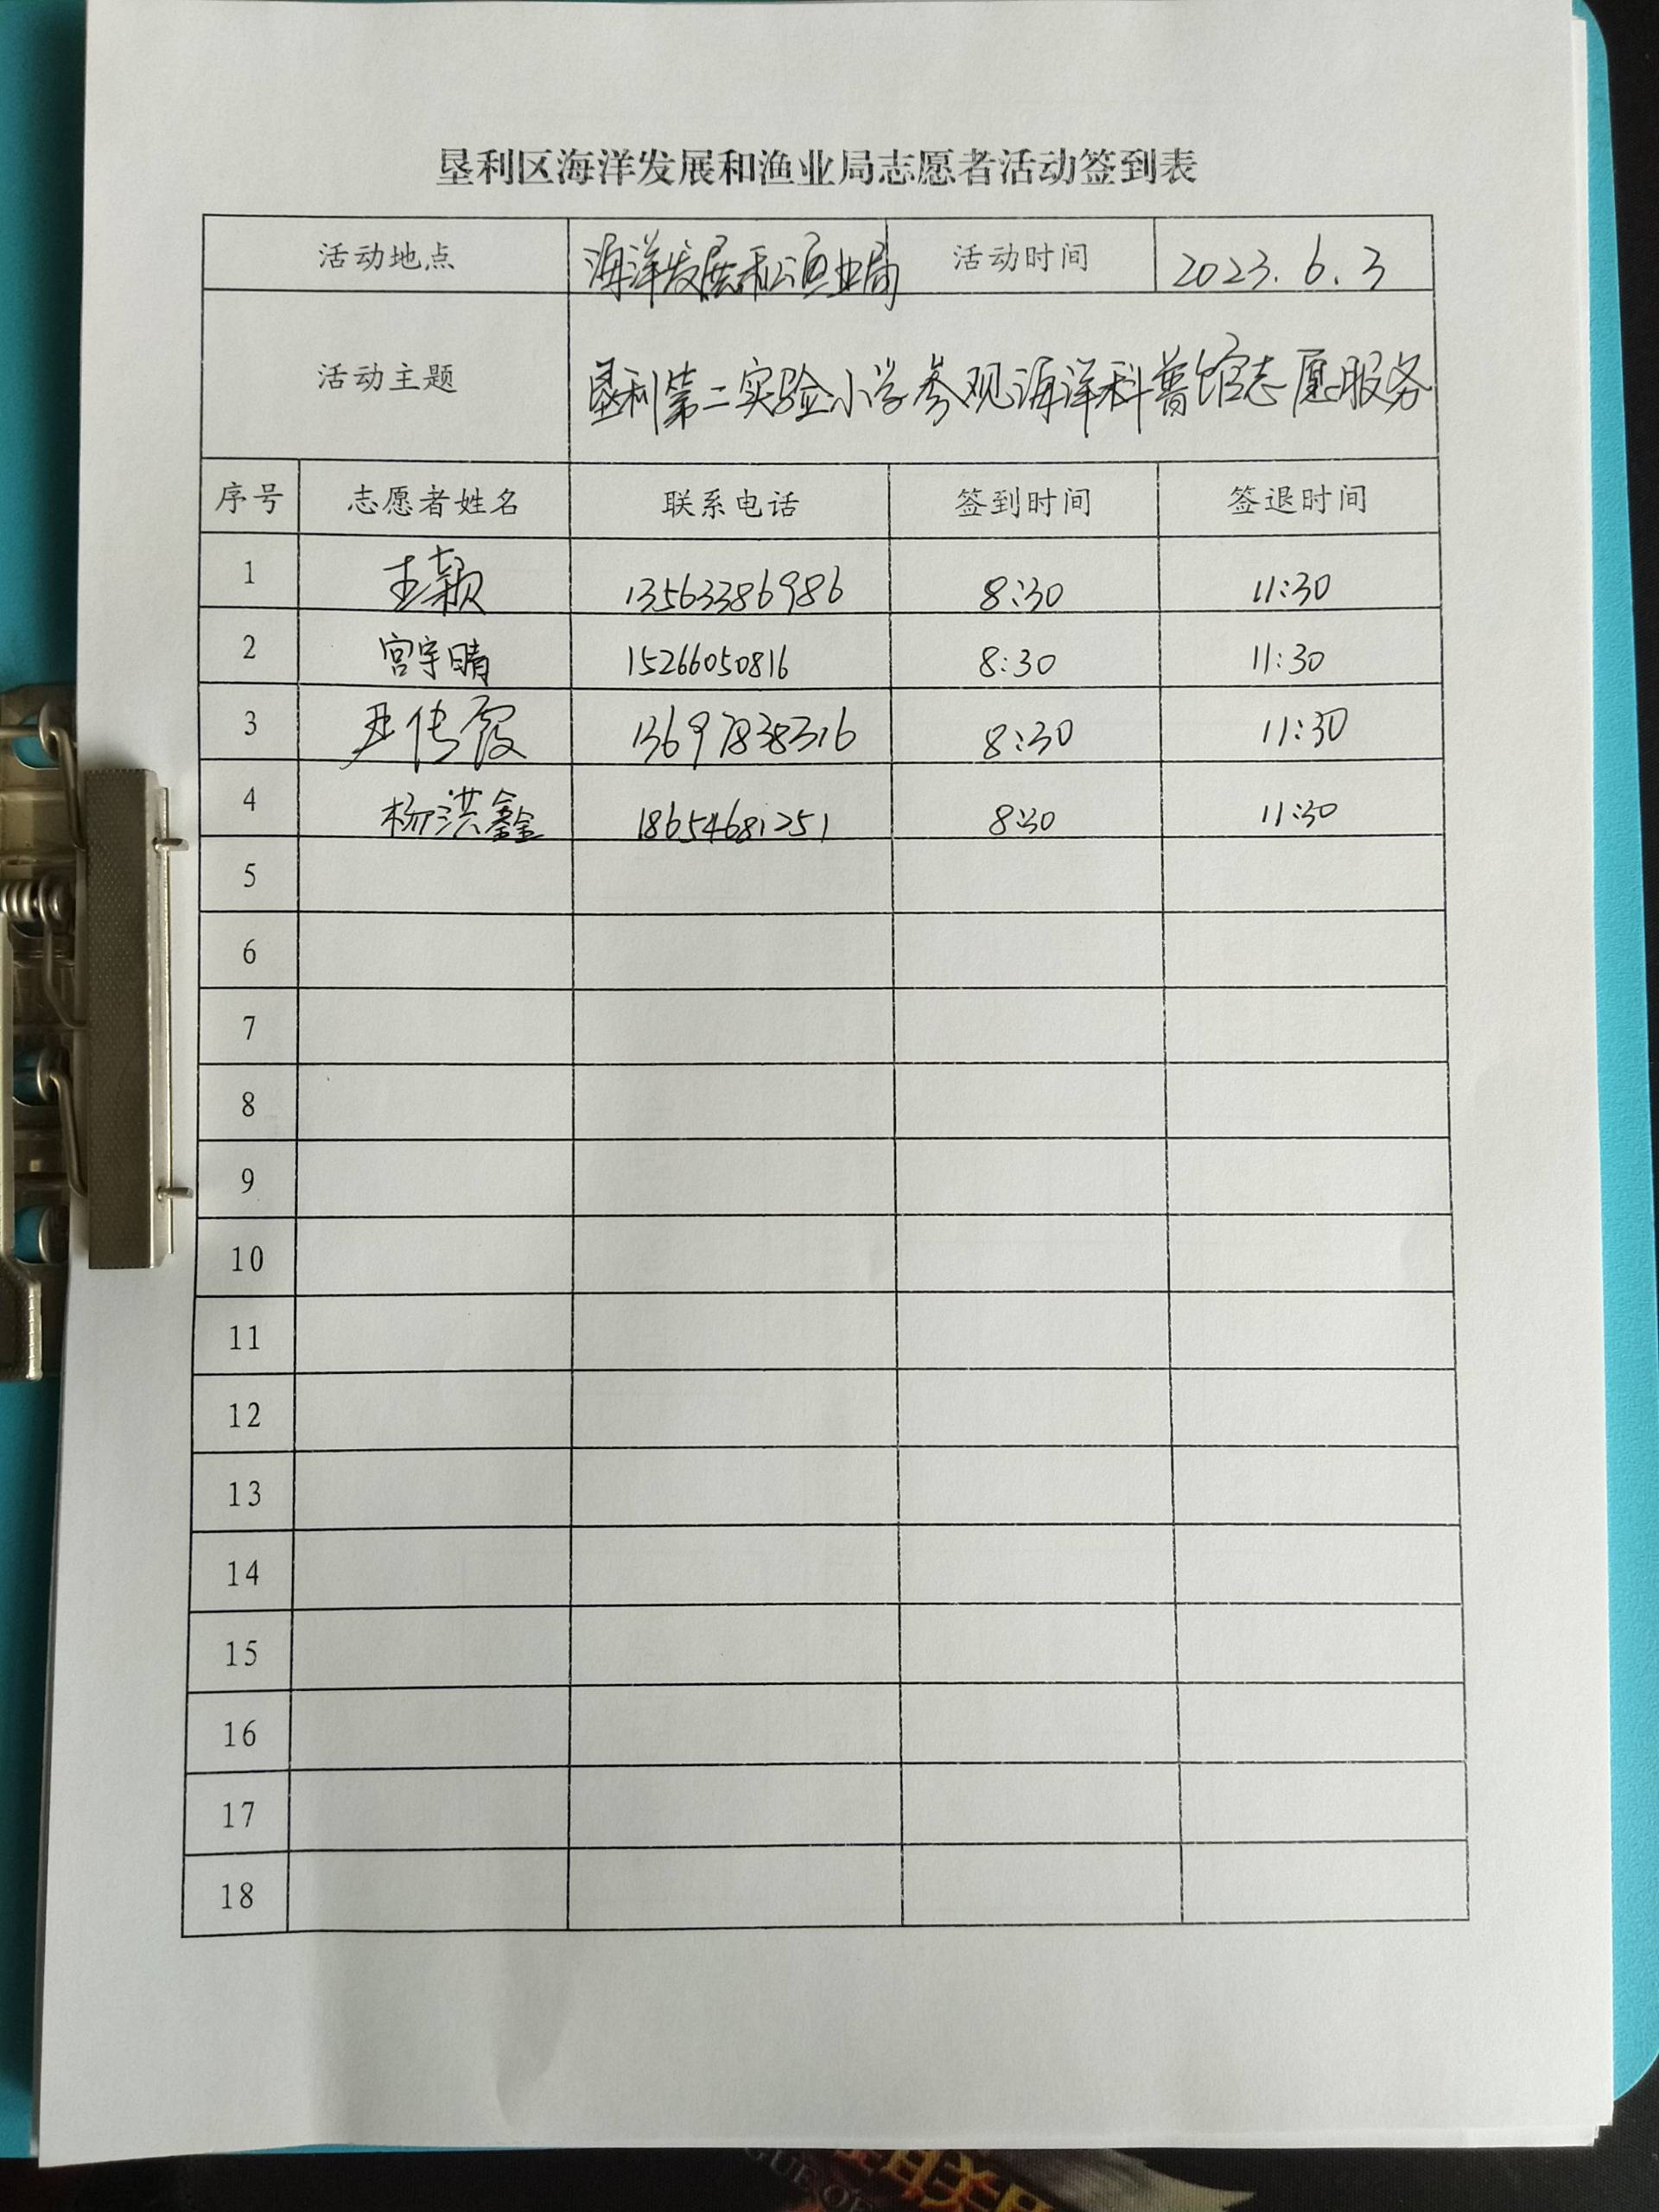 垦利区海洋发展和渔业局志愿者活动签到表
活动地点 海洋发展和渔业局 活动时间 2023.6.3
活动主题 垦利第二实验小学参观海洋科普馆志愿服务
序号 志愿者姓名 联系电话 签到时间 签退时间
1 王颖 13563386986 8:30 11:30
2 宫宇晴 15266050816 8:30 11:30
3 尹传霞 13697838316 8:30 11:30
4 杨洪鑫 18654681251 8:30 11:30
5
6
7
8
9
10
11
12
13
14
15
16
17
18
GUE OF